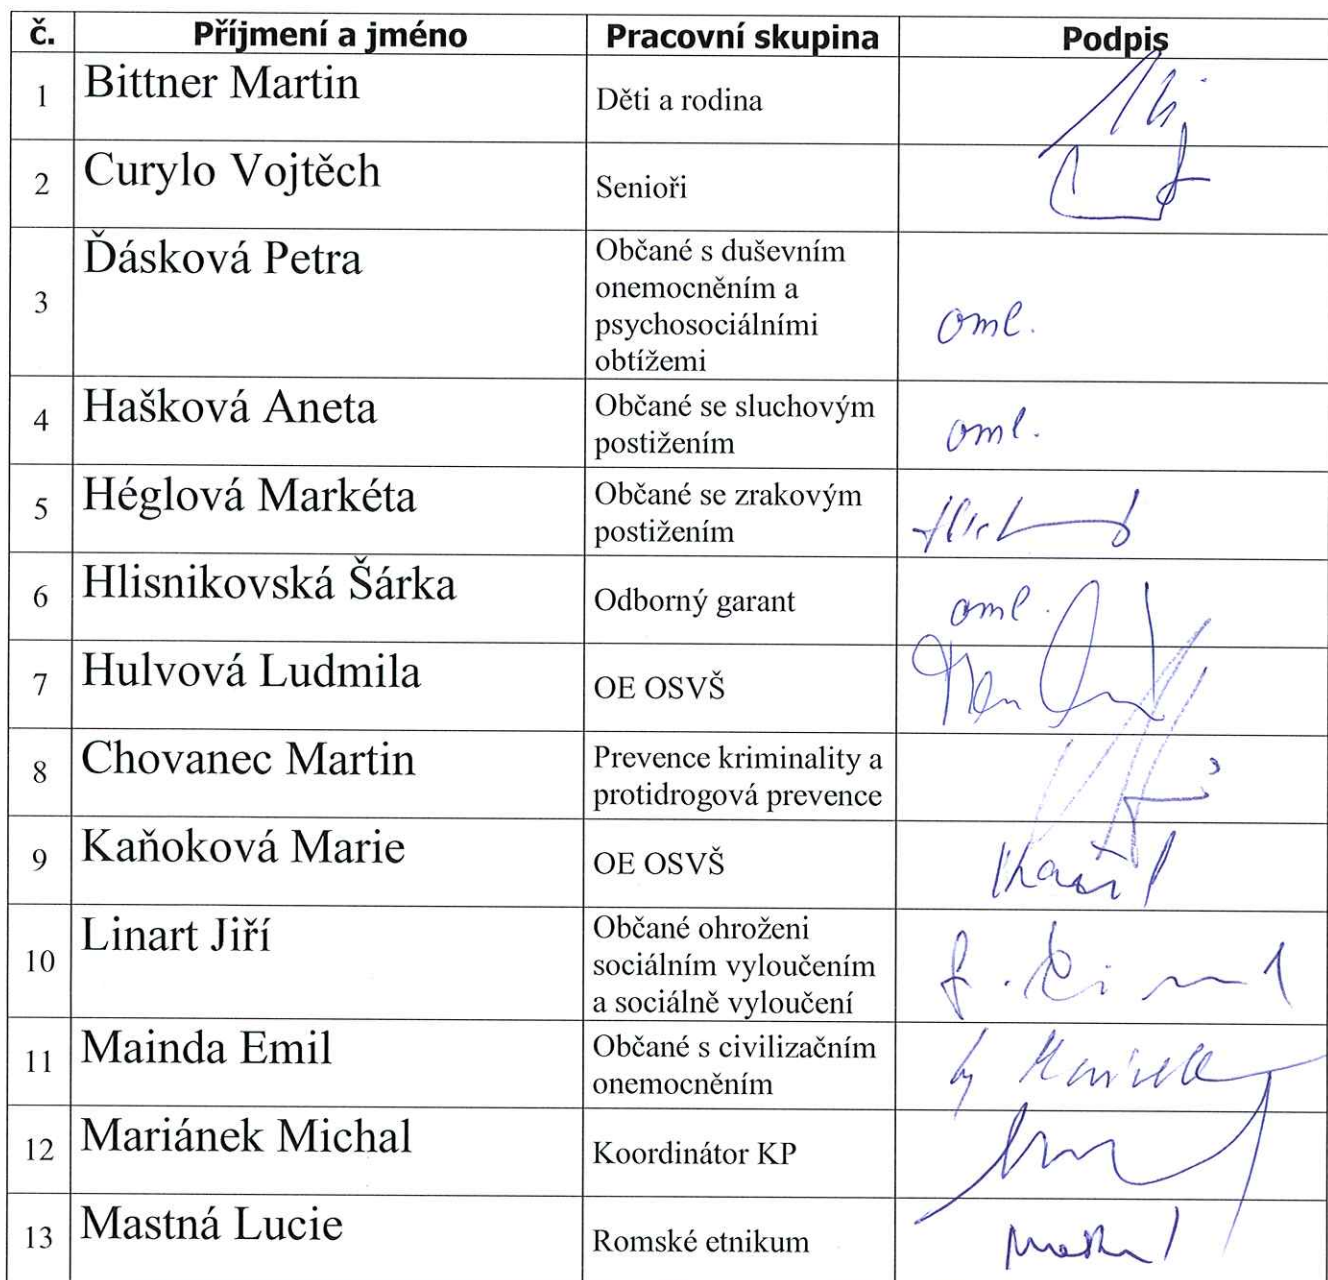 č. Příjmení a jméno Pracovní skupina Podpis
1 Bittner Martin Děti a rodina
2 Curylo Vojtěch Senioři
3 Ďásková Petra Občané s duševním
onemocněním a
psychosociálními
obtížemi
oml.
4 Hašková Aneta Občané se sluchovým
postižením
oml.
5 Héglová Markéta Občané se zrakovým
postižením
6 Hlisnikovská Šárka Odborný garant oml.
7 Hulvová Ludmila OE OSVŠ
8 Chovanec Martin Prevence kriminality a
protidrogová prevence
9 Kaňoková Marie OE OSVŠ
10 Linart Jiří Občané ohroženi
sociálním vyloučením
a sociálně vyloučení
11 Mainda Emil Občané s civilizačním
onemocněním
12 Mariánek Michal Koordinátor KP
13 Mastná Lucie Romské etnikum